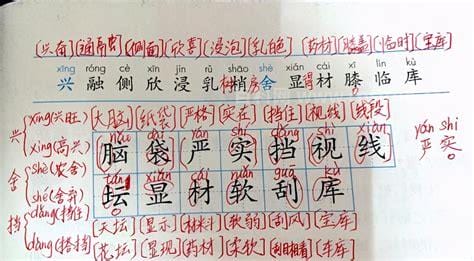 [兴奋][通融][侧面][欣喜][浸泡][乳白色] [药材][膝盖][临时][宝库]
xīng róng cè xīn jìn rǔ shāo shè xiǎn cái xī lín kù
兴 融 侧 欣 浸 乳 树梢 房舍 显得 材 膝 临 库
兴 xīng(兴旺) [大脑][纸袋][严格][实在][挡住][视线][线段]
xìng(高兴) nǎo dài yán shí dǎng shì xiàn yán shí
脑 袋 严 实 挡 视 线 严 实
舍 shè(农舍) tán xiǎn cái ruǎn guā kù
shě(舍弃) 坛 显 材 软 刮 库
挡 dǎng(挡住) [天坛][显示][材料][软弱][刮风][宝库]
[花坛][显现][药材][柔软][刮目相看][车库]